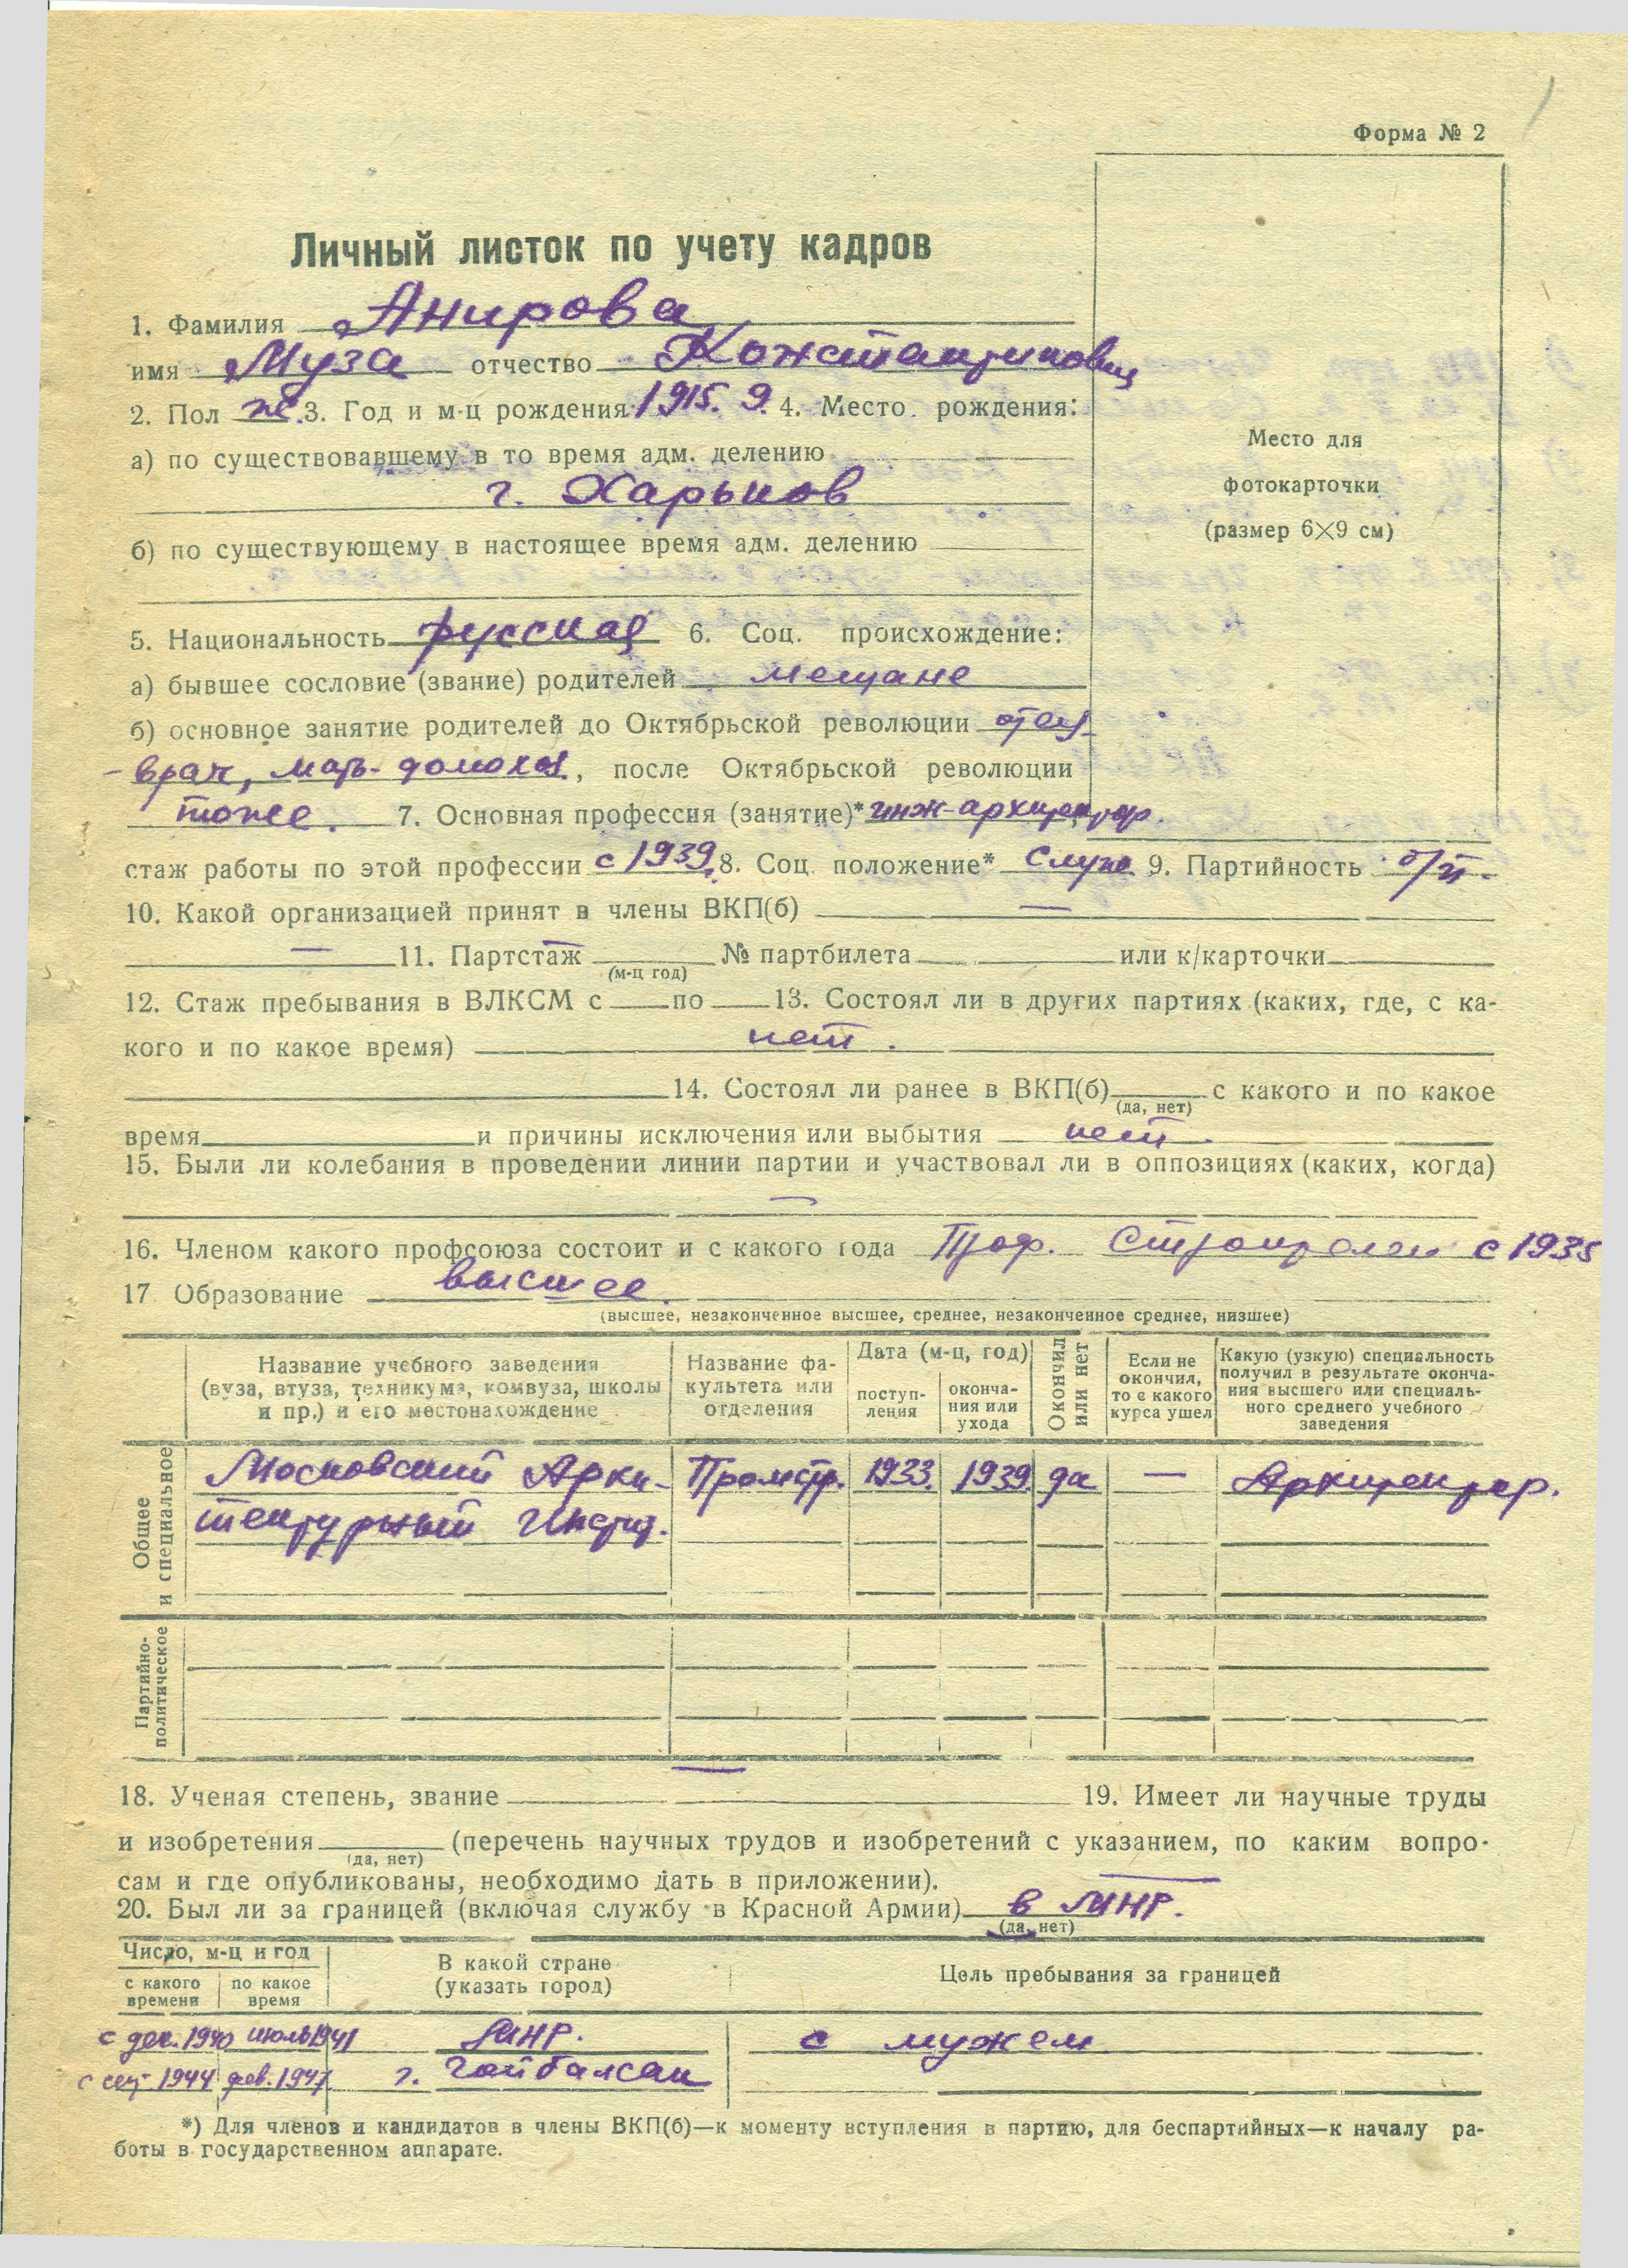 Форма № 2
Личный листок по учету кадров
1. Фамилия Анирова
имя Муза отчество Константиновна
2. Пол ж. 3. Год и м-ц рождения 1915. 9. 4. Место рождения:
а) по существовавшему в то время адм. делению
г. Харьков
б) по существующему в настоящее время адм. делению
Место для
фотокарточки
(размер 6×9 см)
5. Национальность русская 6. Соц. происхождение:
а) бывшее сословие (звание) родителей мещане
б) основное занятие родителей до Октябрьской революции отец
- врач, мать - домохоз., после Октябрьской революции
тоже. 7. Основная профессия (занятие)* инж-архитектор.
стаж работы по этой профессии с 1939. 8. Соц. положение* служ. 9. Партийность б/п.
10. Какой организацией принят в члены ВКП(б) —
— 11. Партстаж № партбилета или к/карточки
(м-ц год)
12. Стаж пребывания в ВЛКСМ с по 13. Состоял ли в других партиях (каких, где, с ка-
кого и по какое время) нет.
14. Состоял ли ранее в ВКП(б) с какого и по какое
(да, нет)
время и причины исключения или выбытия нет.
15. Были ли колебания в проведении линии партии и участвовал ли в оппозициях (каких, когда)
—
16. Членом какого профсоюза состоит и с какого года Проф. с 1935
17 Образование высшее.
(высшее, незаконченное высшее, среднее, незаконченное среднее, низшее)
Название учебного заведения (вуза, втуза, техникума, комвуза, школы и пр.) и его местонахождение
Название факультета или отделения
Дата (м-ц, год)
поступ-ления
оконча-ния или ухода
Окончил или нет
Если не окончил, то с какого курса ушел
Какую (узкую) специальность получил в результате оконча-ния высшего или специаль-ного среднего учебного заведения
Общее и специальное
Московский Архи- Промстр. 1933. 1939. да — Архитектор.
тектурный Инстит.
Партийно-политическое
18. Ученая степень, звание — 19. Имеет ли научные труды
и изобретения (перечень научных трудов и изобретений с указанием, по каким вопро-
(да, нет)
сам и где опубликованы, необходимо дать в приложении). —
20. Был ли за границей (включая службу в Красной Армии) в МНР.
(да, нет)
Число, м-ц и год
с какого времени
по какое время
В какой стране (указать город)
Цель пребывания за границей
с дек. 1940 июль 1941 МНР. с мужем
с сент. 1944 фев. 1947. г. Чойбалсан
*) Для членов и кандидатов в члены ВКП(б)—к моменту вступления в партию, для беспартийных—к началу ра-
боты в государственном аппарате.